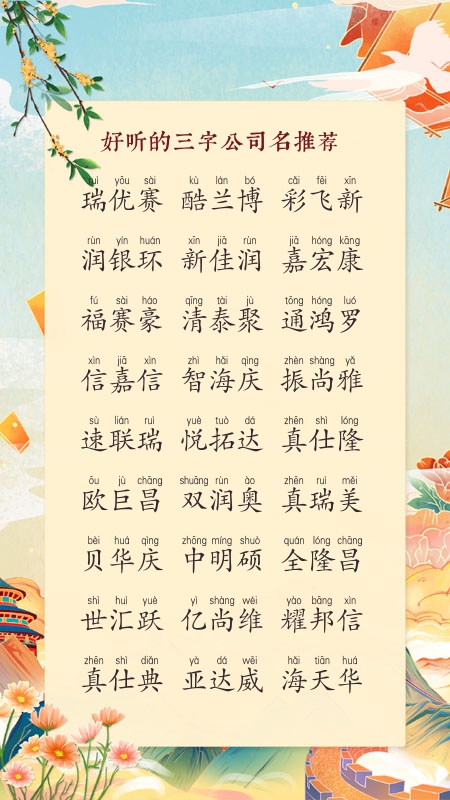 好听的三字公司名推荐
ruì yōu sài kù lán bó cǎi fēi xīn
瑞优赛 酷兰博 彩飞新
rùn yín huán xīn jiā rùn jiā hóng kāng
润银环 新佳润 嘉宏康
fú sài háo qīng tài jù tōng hóng luó
福赛豪 清泰聚 通鸿罗
xìn jiā xìn zhì hǎi qìng zhèn shàng yǎ
信嘉信 智海庆 振尚雅
sù lián ruì yuè tuò dá zhēn shì lóng
速联瑞 悦拓达 真仕隆
ōu jù chāng shuāng rùn ào zhēn ruì měi
欧巨昌 双润奥 真瑞美
bèi huá qìng zhōng míng shuò quán lóng chāng
贝华庆 中明硕 全隆昌
shì huì yuè yì shàng wéi yào bāng xìn
世汇跃 亿尚维 耀邦信
zhēn shì diǎn yà dá wēi hǎi tiān huá
真仕典 亚达威 海天华